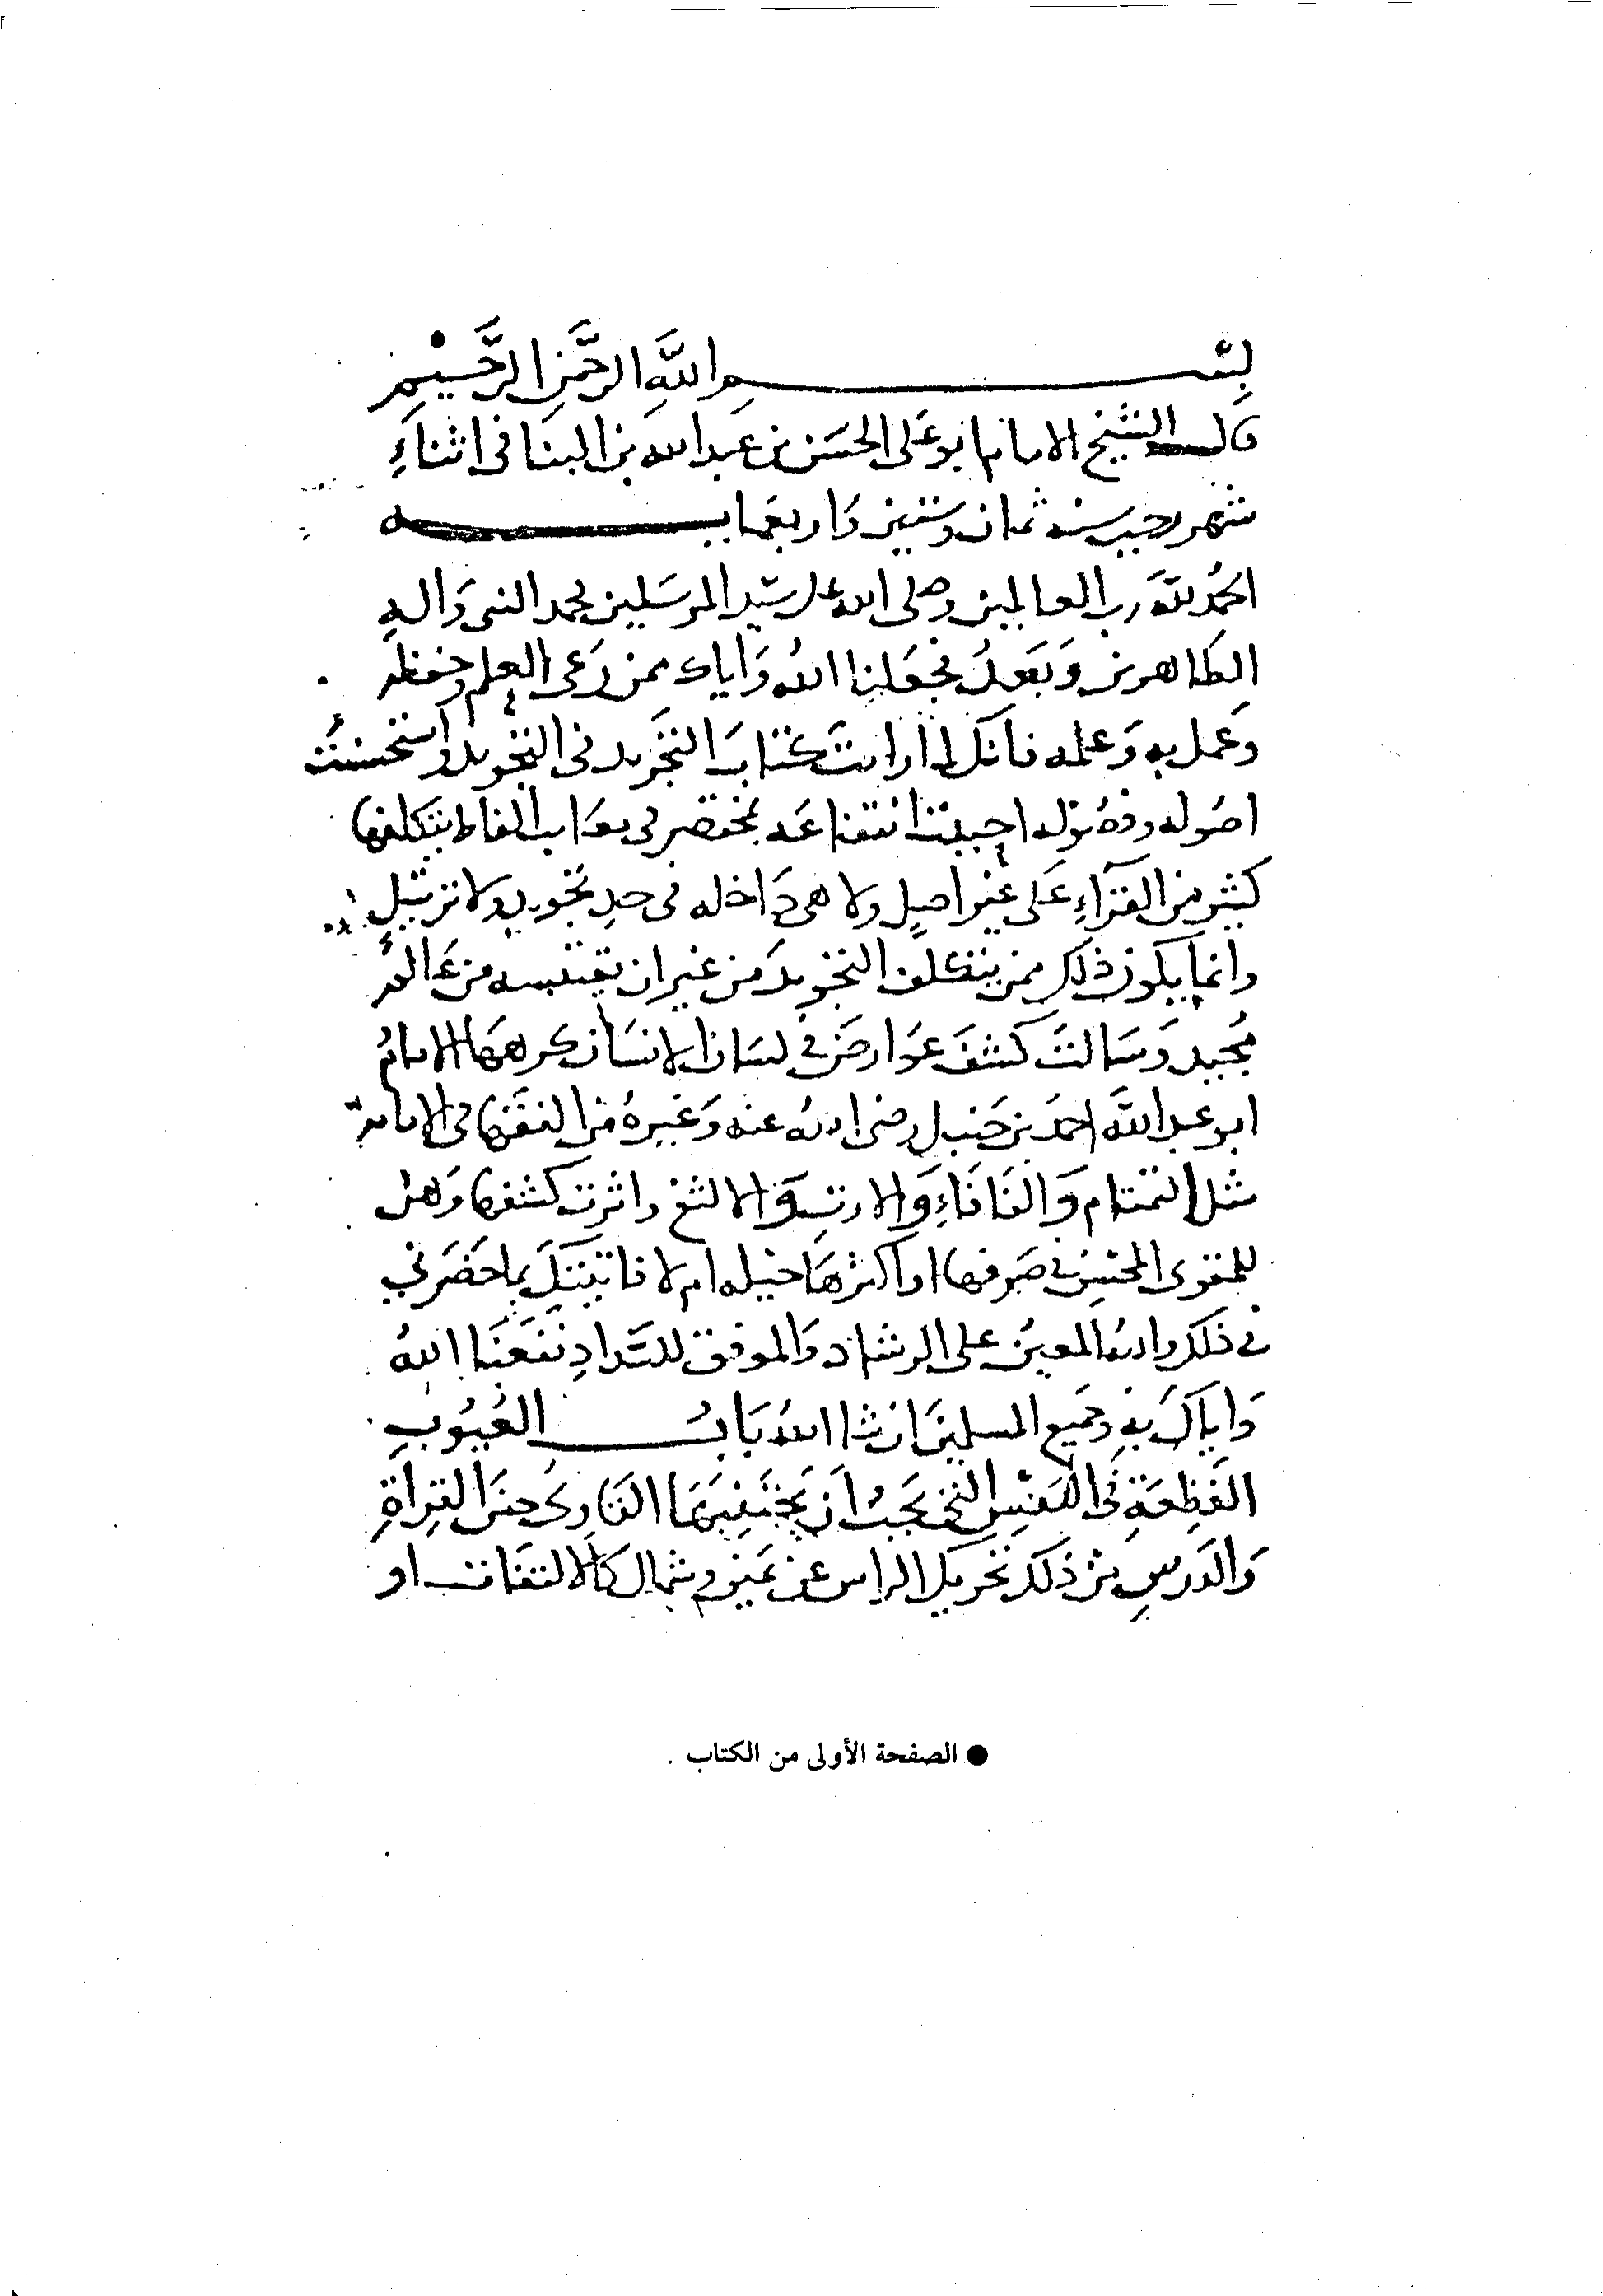 بسم اللَّه الرحمن الرَّحيم
قال الشيخ الامام ابو على الحسن بن عبد الله بن البنا فى اثناءِ
شهر رجب سنه ثمان وستين واربعمايه
الحمد للَّه رب العالمين وصلى الله على سيد المرسلين محمد النبى وَالهِ
الطاهرين وَبَعدُ فجعلنا اللهُ وَاياك ممن رَعى العلم وحفظه
وعمل به وَعلمه فانك لما رايت كتابَ التجريد فى التجويد واستحسنت
اصوله وفصوله احببت انتفاعه بمختصر فى معايب الفاط يتكلفها
كثير من القرّاءِ عَلى غير اصلٍ ولا هى دَاخله فى حدِ تجويدٍ ولا ترتيلٍ
وانما يكون ذلك ممن يتكلف التجويد من غير ان يقتبسه من عَالمٍ
مُجيد وَسَالتَ كشفَ عوَارض فى لسَان الانسَان كرهها الامامُ
ابو عبد اللَّه احمد بن حَنبل رضى الله عنه وَغيرهُ من الفقها فى الامامة
مثل التمتام وَالفَافَاءِ وَالارتِ وَالالثغ واثرت كشفها وَهل
للمقرى المحسن فى صَرفها او اكثرهَا حيله ام لا فاتيتكَ بما حَضَرنى
فى ذلك والله المعين على الرشاد وَالموفق للسَّدادِ نَفعَنا اللهُ
وَاياكَ بهِ وجَميع المسلمين ان شا اللهُ بَابُ العُيُوبِ
الفَظِعَةِ فى النفسِ التى يَجبُ اَن يَجتَنِبهَا القَارى حينَ القِراةِ
وَالدَرسِ من ذَلكَ تحريك الراس عن يمين وشمال كالالتفات او
● الصفحة الأولى من الكتاب .